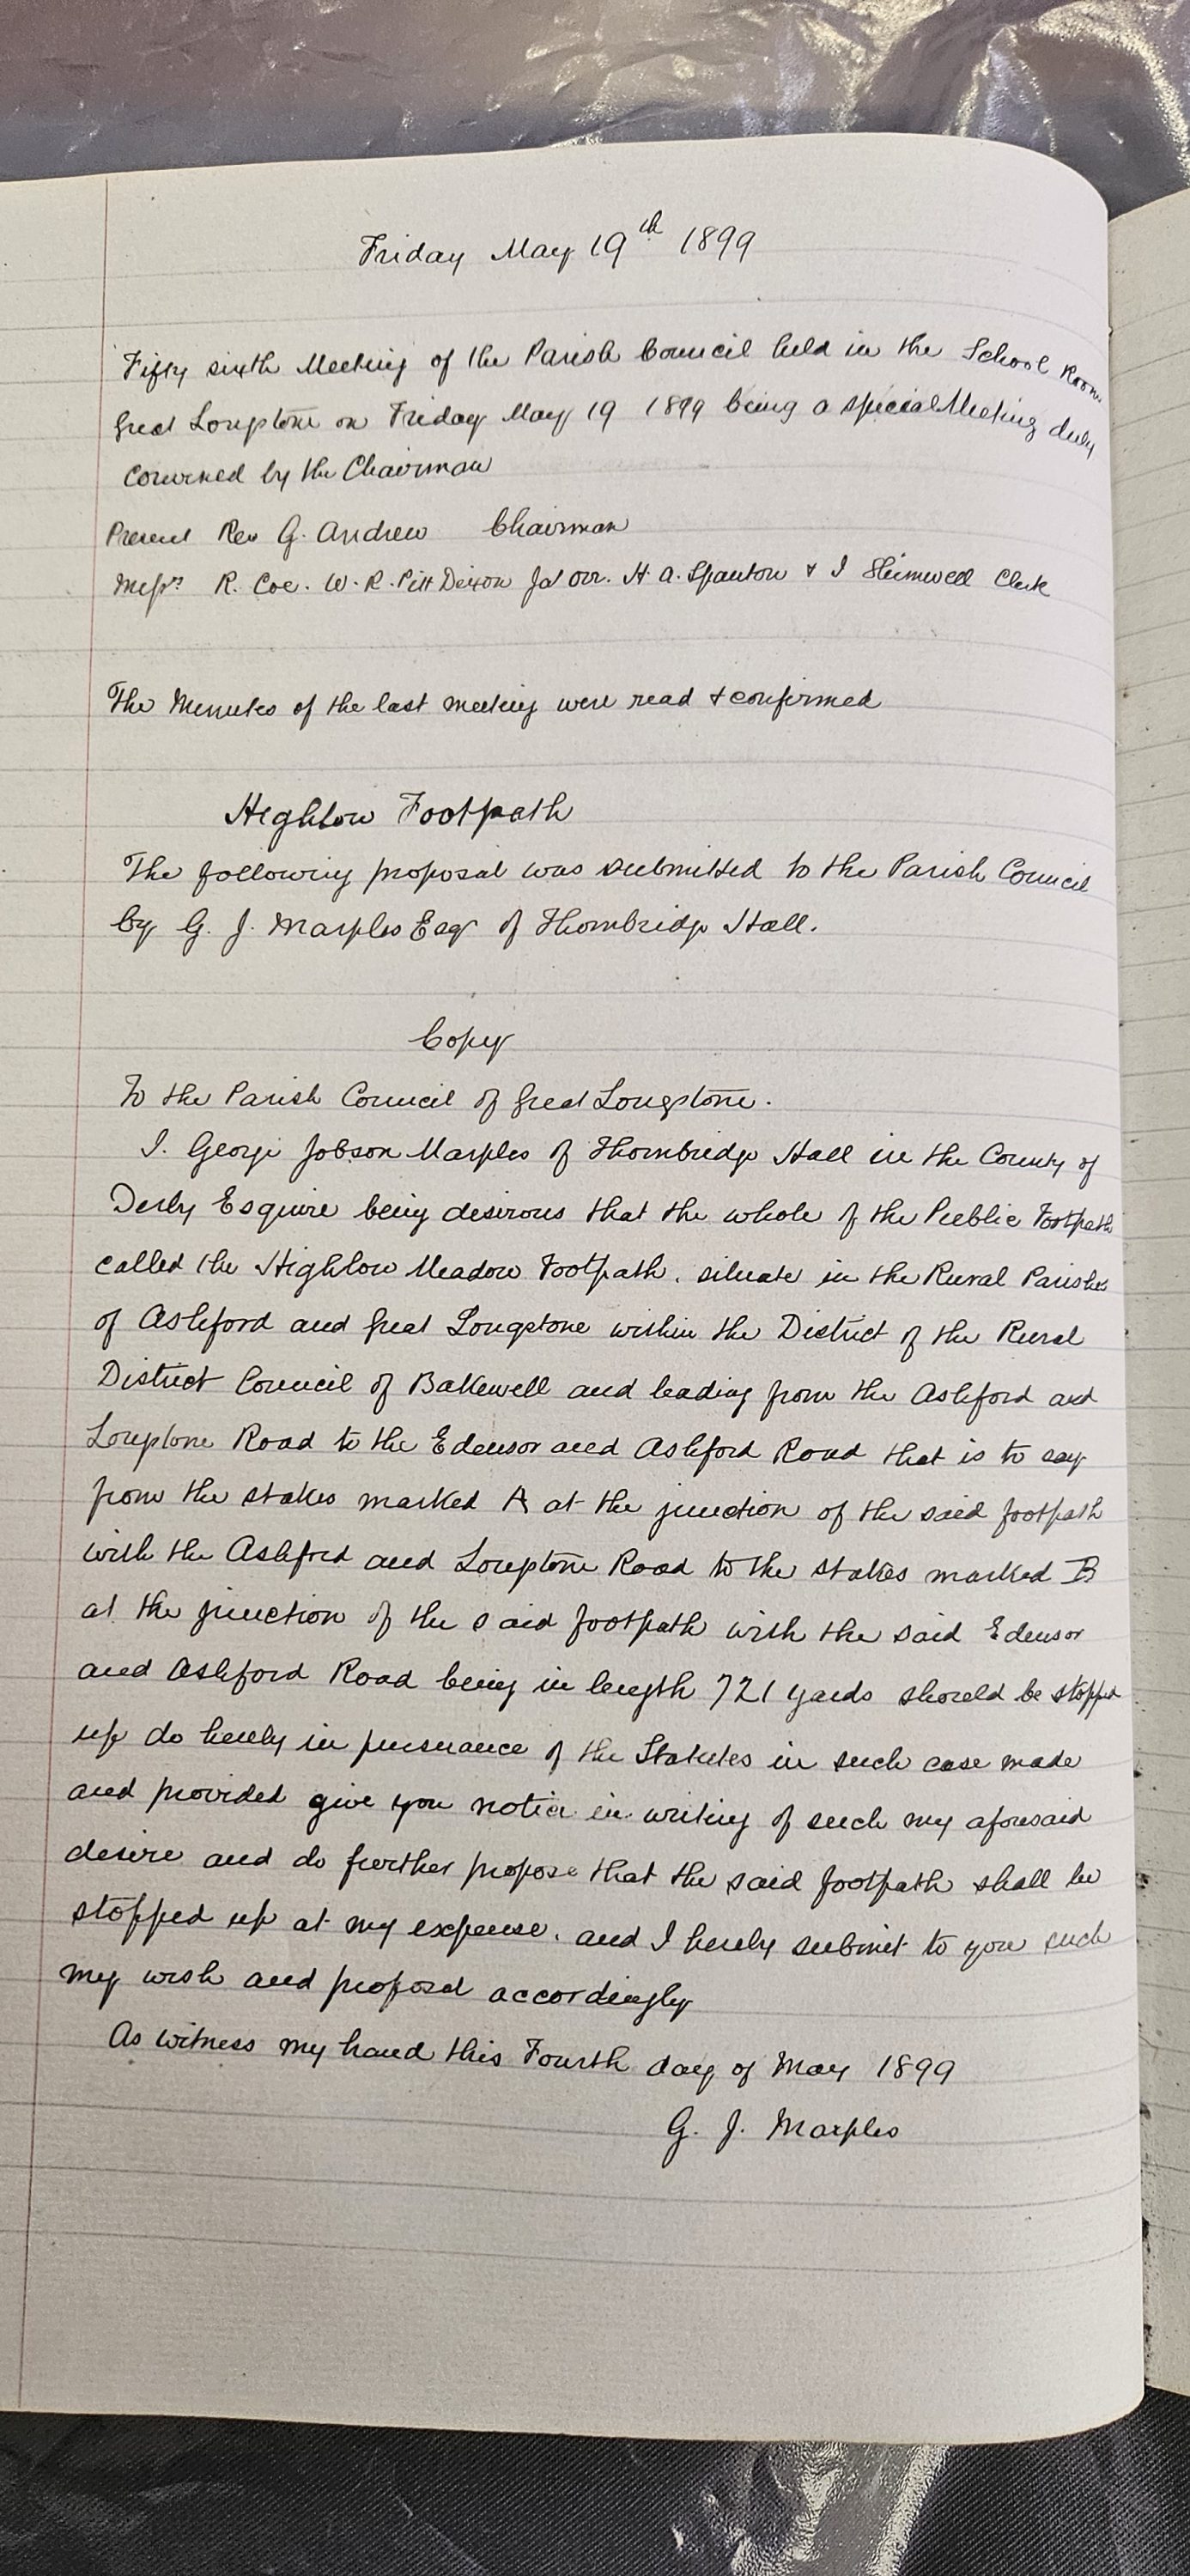 Friday May 19th 1899
Fifty sixth Meeting of the Parish Council held in the School Room
Great Longstone on Friday May 19 1899 being a special Meeting duly
convened by the Chairman
Present Rev G. Andrew Chairman
Messrs R. Coe. W. R. Pitt Dixon Jas Orr. H. A. Spanton & I Shimwell Clerk
The Minutes of the last meeting were read & confirmed
Highlow Footpath
The following proposal was submitted to the Parish Council
by G. J. Marples Esqr of Thornbridge Hall.
Copy
To the Parish Council of Great Longstone.
I. George Jobson Marples of Thornbridge Hall in the County of
Derby Esquire being desirous that the whole of the Public Footpath
called the Highlow Meadow Footpath. situate in the Rural Parishes
of Ashford and Great Longstone within the District of the Rural
District Council of Bakewell and leading from the Ashford and
Longstone Road to the Edensor and Ashford Road that is to say
from the stakes marked A at the junction of the said footpath
with the Ashford and Longstone Road to the stakes marked B
at the junction of the said footpath with the said Edensor
and Ashford Road being in length 721 yards should be stopped
up do hereby in pursuance of the Statutes in such case made
and provided give you notice in writing of such my aforesaid
desire and do further propose that the said footpath shall be
stopped up at my expense. and I hereby submit to you such
my wish and proposal accordingly
As witness my hand this Fourth day of May 1899
G. J. Marples